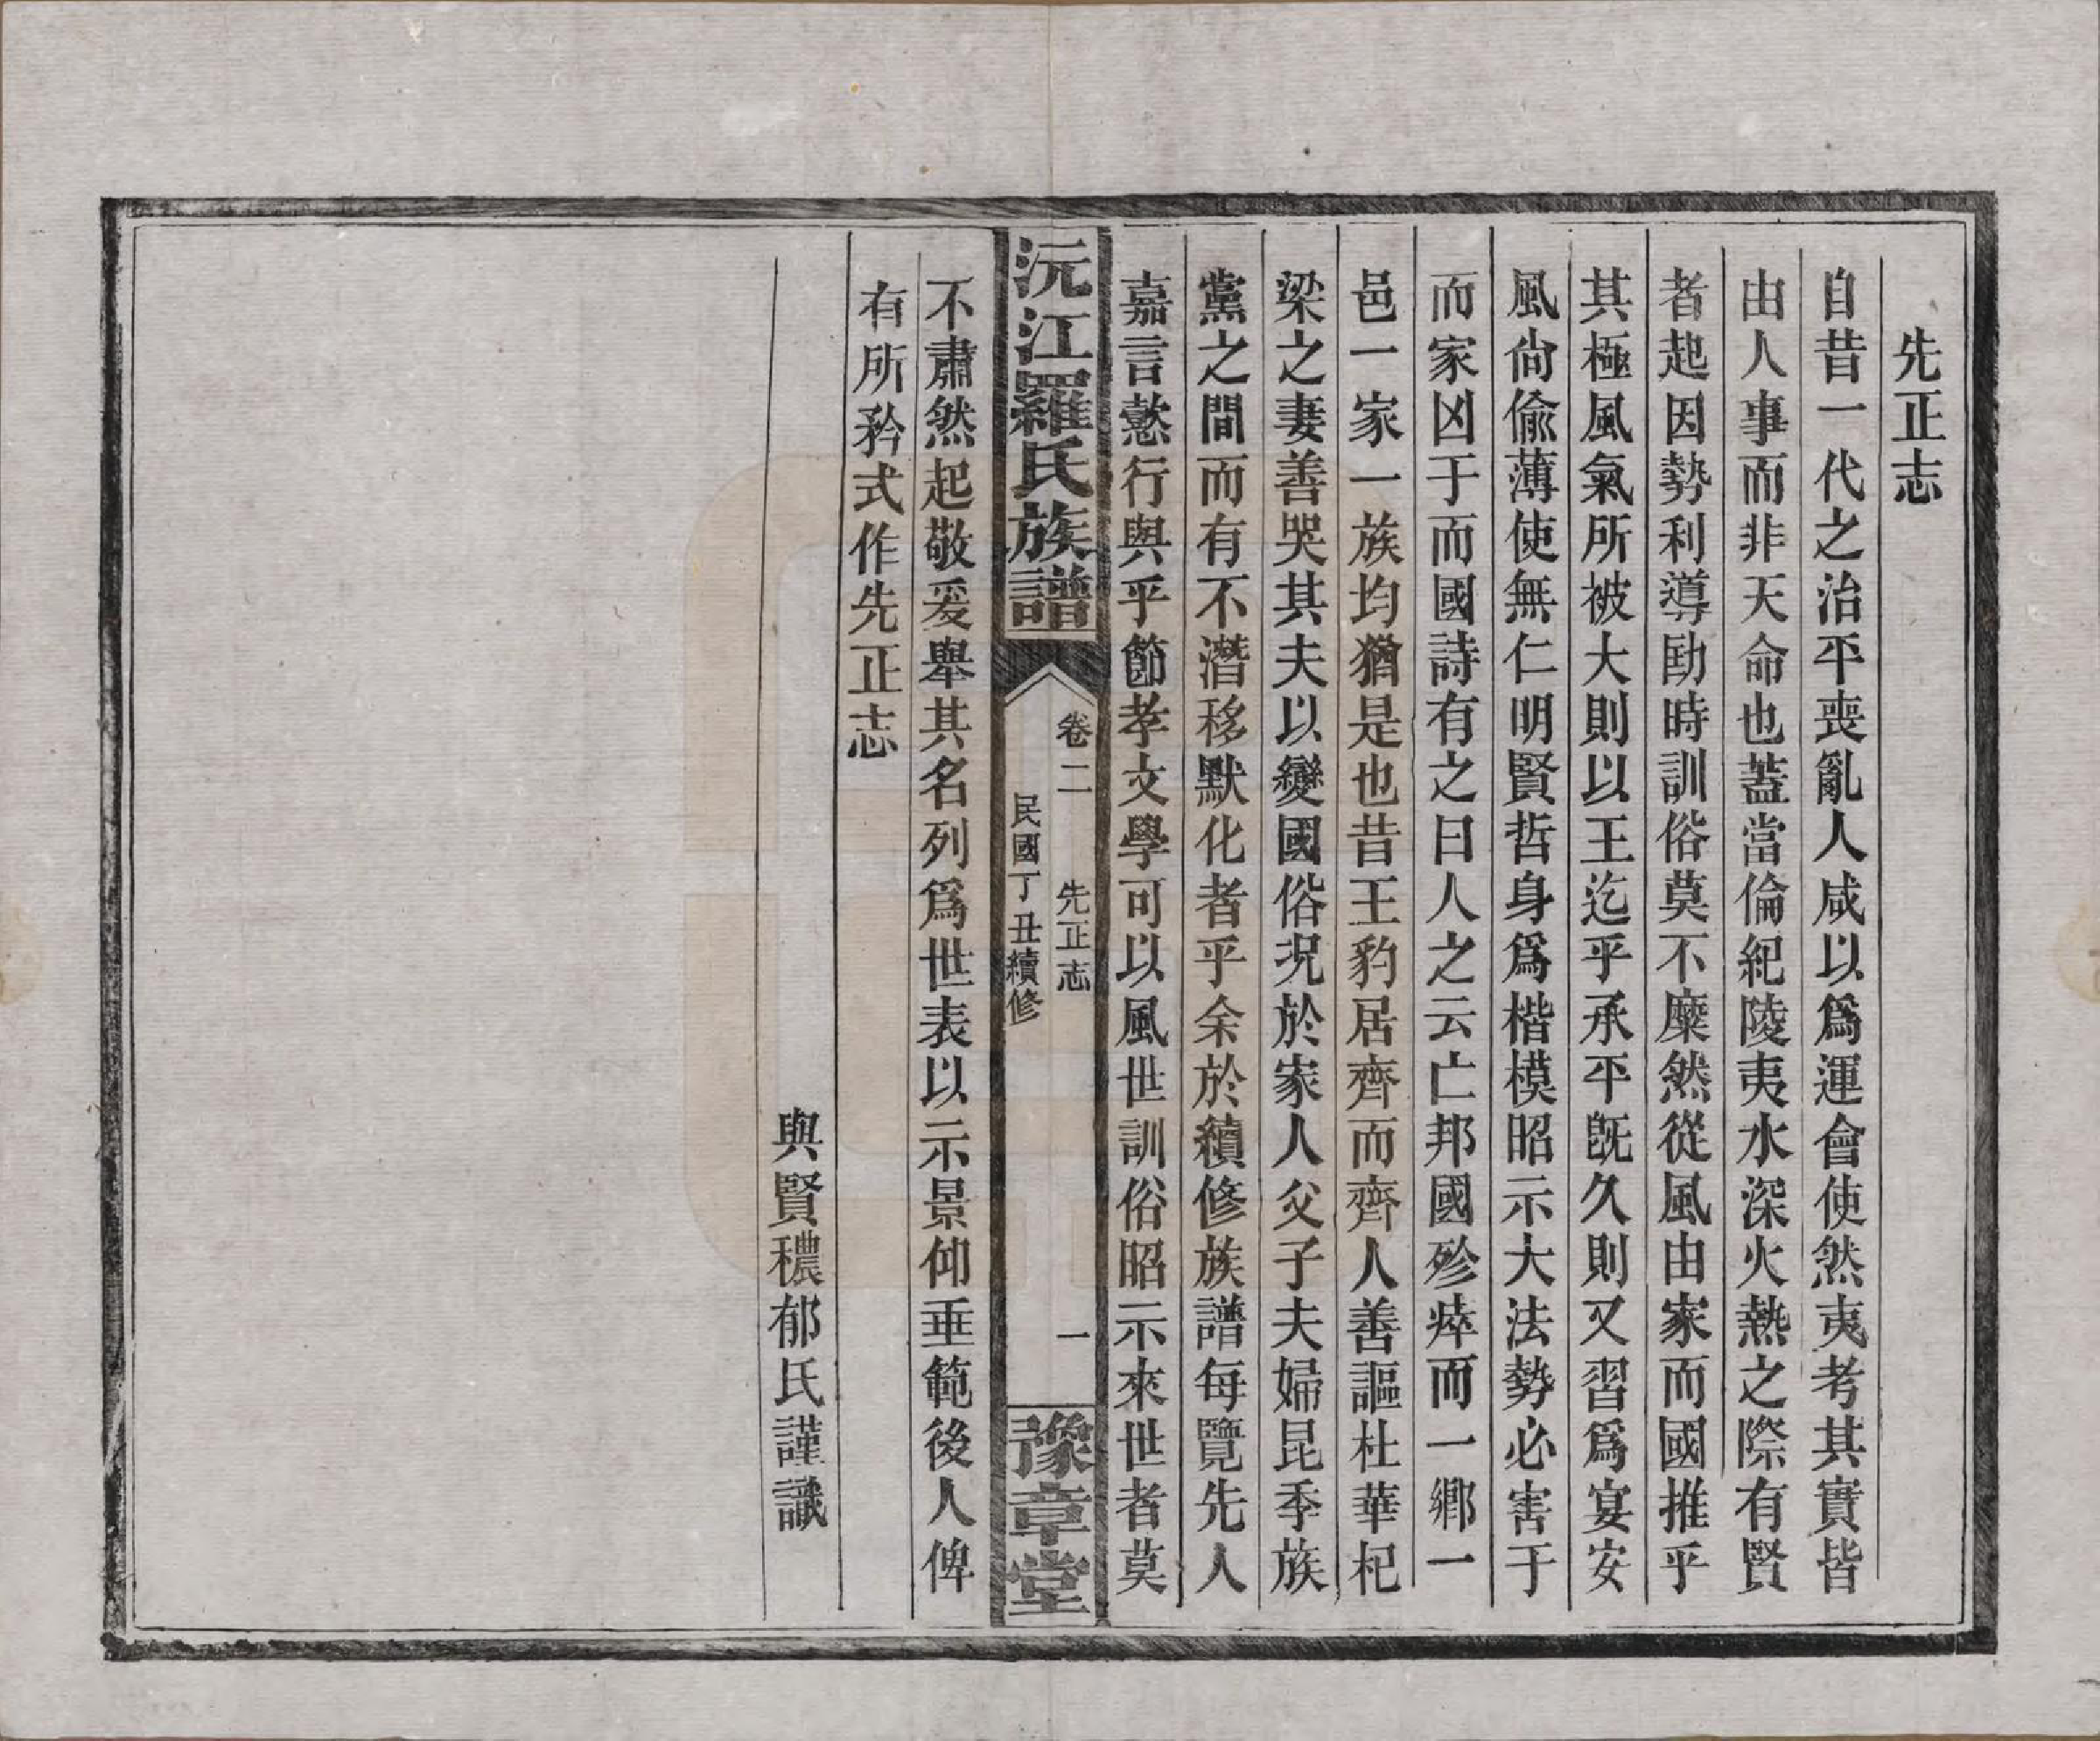 先正志
自昔一代之治平喪亂人咸以爲運會使然夷考其實皆
由人事而非天命也葢當倫紀陵夷水深火熱之際有賢
者起因勢利導勖時訓俗莫不糜然從風由家而國推乎
其極風氣所被大則以王迄乎承平旣久則又習爲宴安
風尙偷薄使無仁明賢哲身爲楷模昭示大法勢必害于
而家凶于而國詩有之曰人之云亡邦國殄瘁而一鄉一
邑一家一族均猶是也昔王豹居齊而齊人善謳杜華杞
梁之妻善哭其夫以變國俗況於家人父子夫婦昆季族
黨之間而有不潛移默化者乎余於續修族譜每覽先人
嘉言懿行與乎節孝文學可以風世訓俗昭示來世者莫
沅江羅氏族譜
卷二 先正志 一
民國丁丑續修
豫章堂
不肅然起敬爰舉其名列爲世表以示景仰垂範後人俾
有所矜式作先正志
與賢穠郁氏謹識